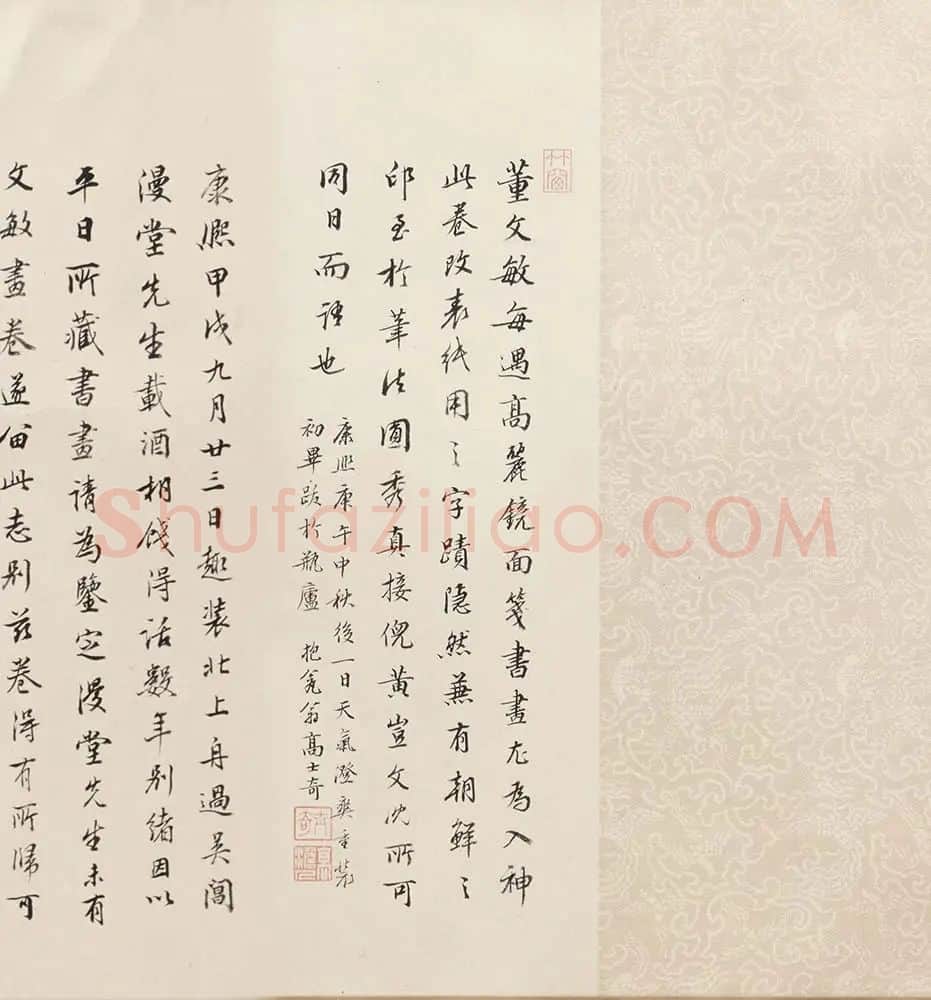 竹窗
董文敏每遇高麗鏡面箋書畫尤為入神
此卷改表紙用之字蹟隱然兼有朝鮮之
印至於筆法圓秀真接倪黃豈文沈所可
同日而語也
康熙庚午中秋後一日天氣澄爽重裝
初畢跋於瓶廬 抱瓮翁高士奇
康熙甲戌九月廿三日趣裝北上舟過吳閶
漫堂先生載酒相餞得話數年別緒因以
平日所藏書畫請為鑒定漫堂先生未有
文敏畫卷遂留此志別茲卷得有所歸可
Shufaziliao.COM